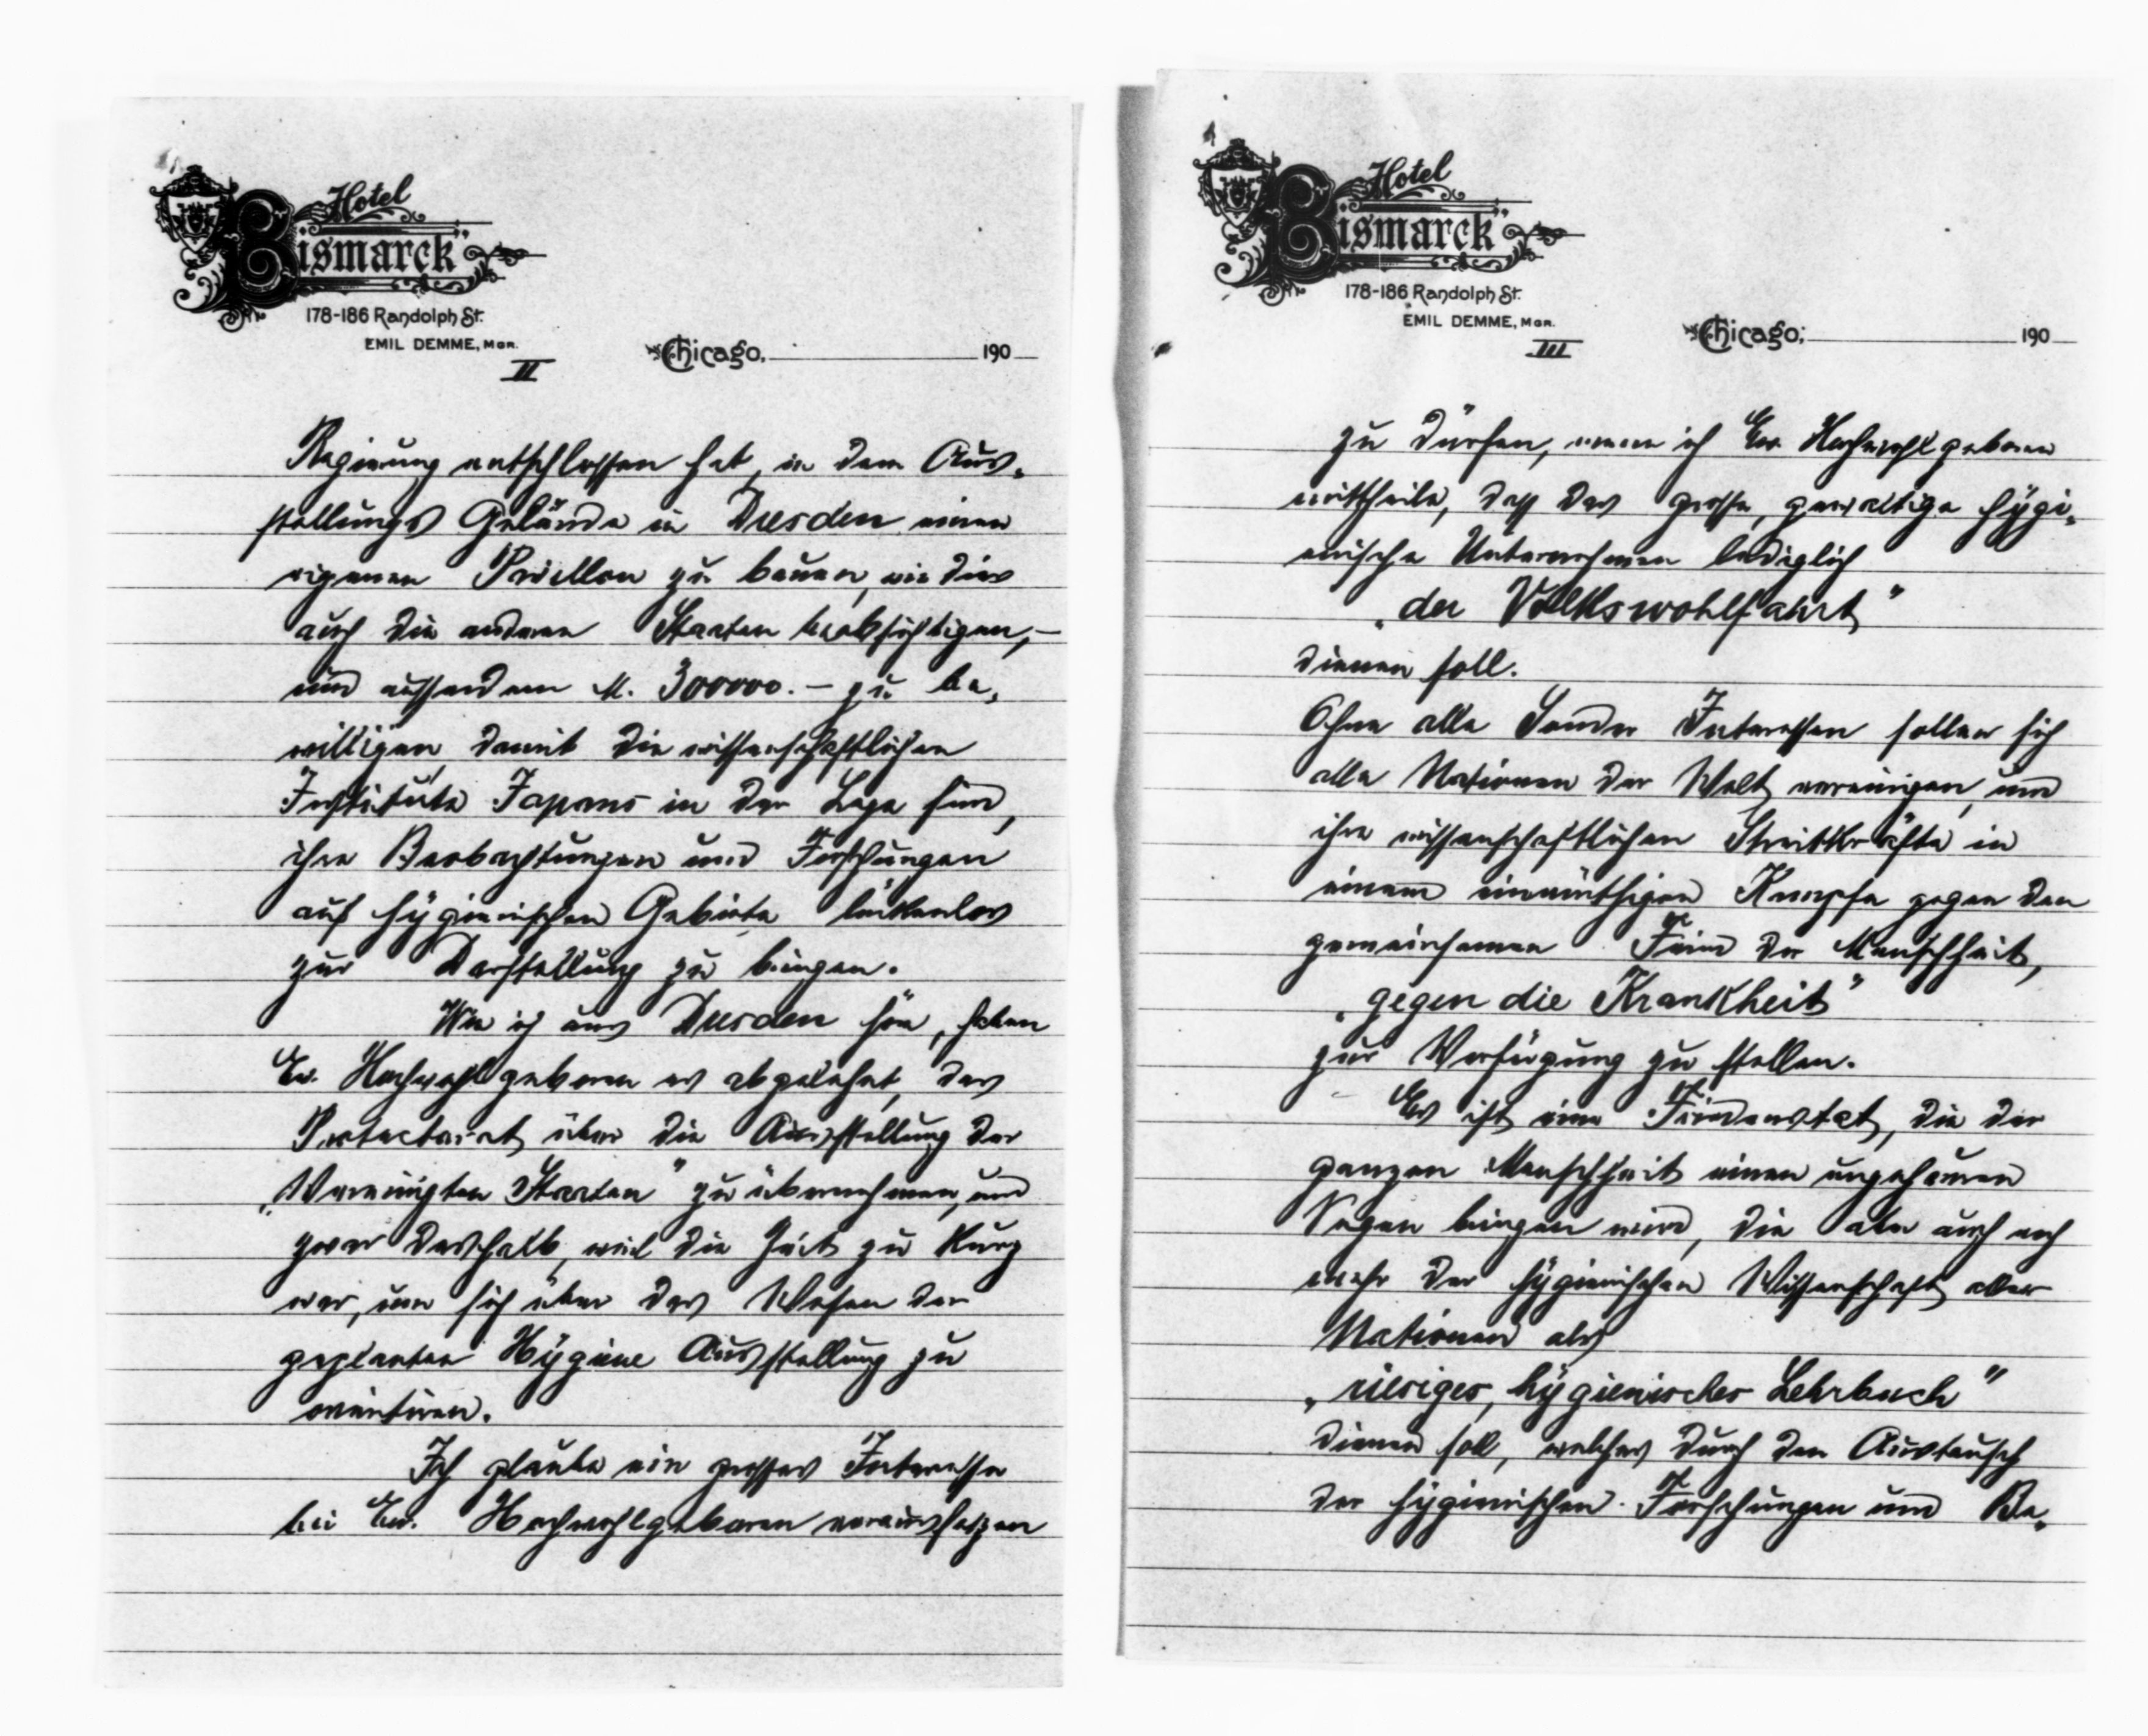 Hotel
"Bismarck"
178-186 Randolph St.
EMIL DEMME, MGR.
II
Chicago, 190
Regierung entschlossen hat, in dem Aus-
stellungs Gelände in Dresden einen
eigenen Pavillon zu bauen, wie dies
auch die anderen Staaten beabsichtigen,-
und ausserdem M. 300000.- zu be-
willigen, damit die wissenschaftlichen
Institute Japans in der Lage sind,
ihre Beobachtungen und Forschungen
auf hygienischen Gebiete lückenlos
zur Darstellung zu bringen.
Wie ich aus Dresden höre, haben
Ew. Hochwohlgeboren es abgelehnt, das
Protectorat über die Ausstellung der
„Vereinigten Staaten" zu übernehmen, und
zwar deshalb, weil die Zeit zu kurz
war, um sich über das Wesen der
geplanten Hygiene Ausstellung zu
orientiren.
Ich glaube ein grosses Interesse
bei Ew. Hochwohlgeboren voraussetzen
Hotel
"Bismarck"
178-186 Randolph St.
EMIL DEMME, MGR.
III
Chicago, 190
zu dürfen, wenn ich Ew. Hochwohlgeboren
mittheile, dass das grosse, gewaltige hygi-
enische Unternehmen lediglich
„der Volkswohlfahrt"
dienen soll.
Ohne alle Sonder Interessen sollen sich
alle Nationen der Welt vereinigen, und
ihre wissenschaftlichen Streitkräfte in
einem einmüthigen Kampfe gegen den
gemeinsamen Feind der Menschheit,
„gegen die Krankheit"
zur Verfügung zu stellen.
Es ist eine Friedenstat, die der
ganzen Menschheit einen ungeheuren
Segen bringen wird, die aber auch noch
mehr der hygienischen Wissenschaft aller
Nationen als
„riesiges, hygienisches Lehrbuch"
dienen soll, welches durch den Austausch
der hygienischen Forschungen und Be-